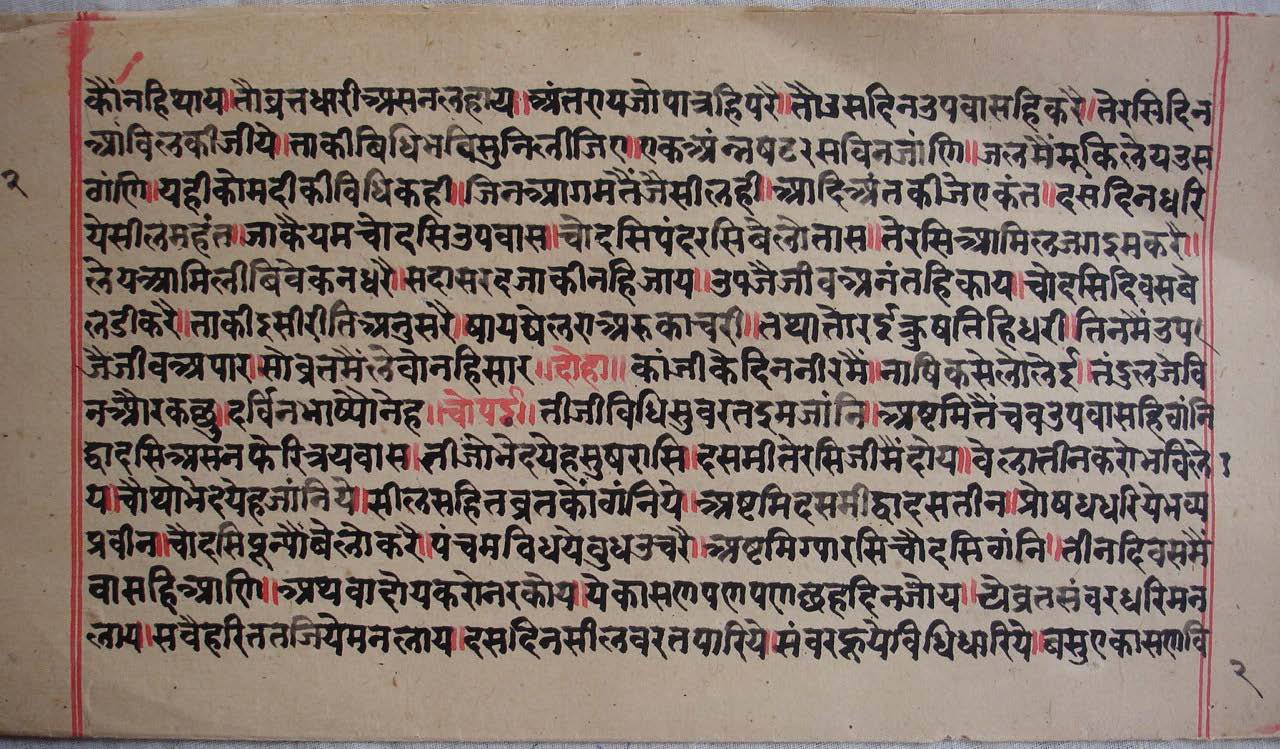 कौंनहि षाय॥तौ व्रतधारी असन लहाय॥अंतराय जो पात्रहि परै॥तौ उस दिन उपवासहि करै॥तेरसि दिन
आंविल कीजीये॥ताकी विधि भवि सुनि लीजिए॥एक अंन षट रस विन जांणि॥जल मैं मूकि लेय उस
वांणि॥यही कोमदी की विधि कही॥जिन आगम तैं जैसी लही॥आदि अंत कीजे एकंत॥दस दिन धरि
ये सील महंत॥जाकै यम चोदसि उपवास॥चोदसि पंदरसि बेलो तास॥तेरसि आमिल
लेय आमिली विवेक न धरै॥सदा सरद जाकी नहि जाय॥उपजै जीव अनंतहि काय॥चोदसि दिवस बे
लडी करै॥ताकी इसी रीति अनुसरै॥ अरु काचरी॥तथा तोरई
जै जीव अपार॥सो व्रत मैं लेवो नहि सार॥दोहा॥कांजी के दिन नीर मैं॥नाषि कसेलो लेई॥तंडुल जे वि
न और कछु॥दर्वि न भाष्यौ तेह॥चोपई॥तीजी विधि सुव रत इम जांनि॥अष्टमि तैं चव उपवासहि वांनि
द्वादसि असन फेरि त्रय वास॥तीजो भेद येह सुषरासि॥दसमी तेरसि जीमैं दोय॥वेला तीन करो भवि ले
य॥चौथो भेद येह जांनिये॥सील सहित व्रत कौं वांनिये॥अष्टमि दसमी द्वादस तीन॥प्रोषध धरिये भव्य
प्रवीन॥चौदसि पून्यौं बेलो करै॥पंचम विध ये वुध उचरै॥अष्टमि ग्यारसि चौदसि वांनि॥तीन दिवस मैं
वासहि आणि॥अथवा दोय करो नर कोय॥येकासण पण पण छह दिन जोय॥ये व्रत संवर धरि मन
लाय॥सवै हरित तजिये मन लाय॥दस दिन सील वरत पारिये॥संवर हू ये विधि धारिये॥बसु एकासण वि
२
२